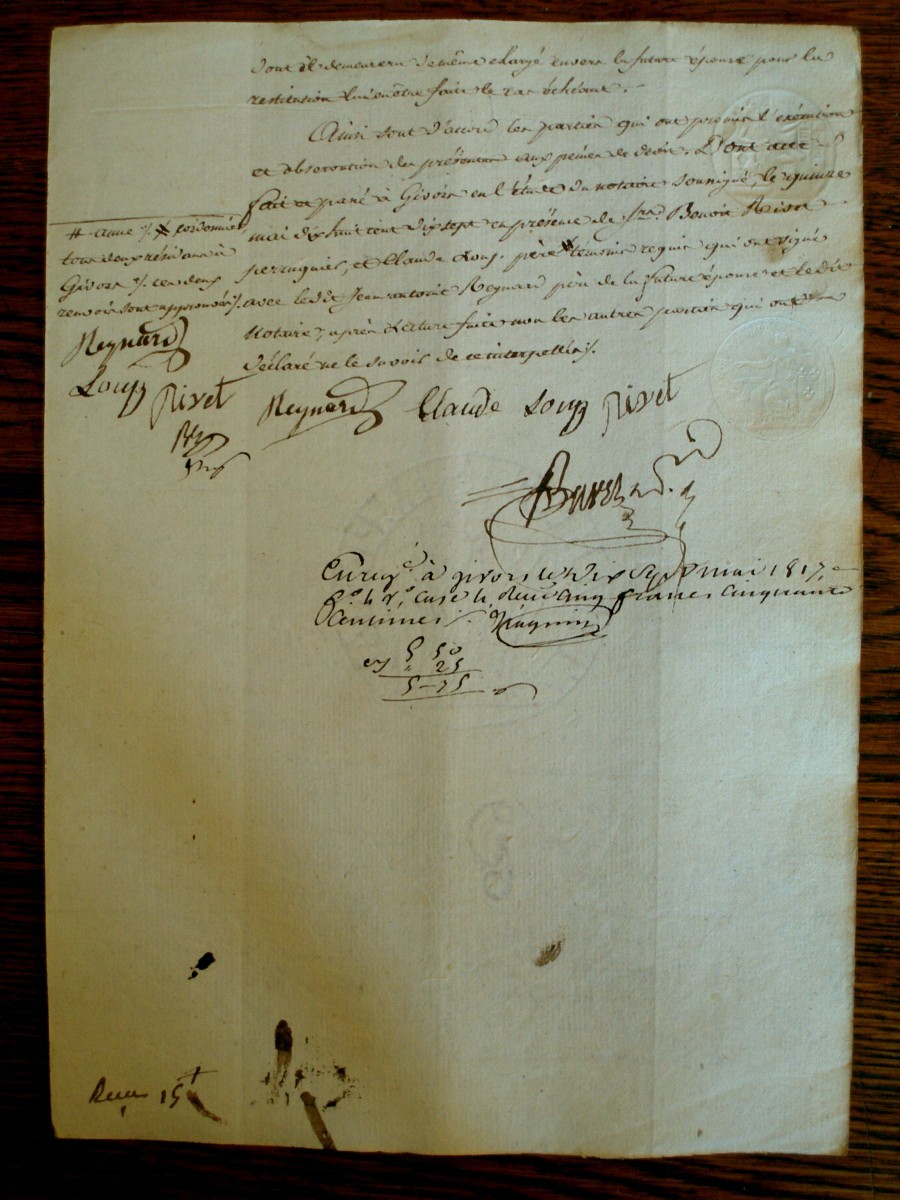 dont il demeurera de même chargé envers la future épouse pour la
restitution lui en être faite le cas échéant.
Ainsi sont d'accord les parties qui ont promis l'exécution
et observation des présentes aux peines de droit. Dont acte
fait et passé à Givors en l'étude du notaire soussigné, le quinze
mai dix huit cent dix sept en présence de Benoit Rivet
perruquier, et Claude Loup père # témoins requis qui ont signé
avec ledit Jean antoine Reynard père de la future épouse et ledit
Notaire, après Lecture faite non les autres parties qui ont
déclaré ne le savoir de ce interpellés %.
# anne % # cordonnier
tous deux résidans à
Givors %. ces deux
renvois sont approuvés %.
Reynard
Loup
Rivet
Reynard Claude Loup Rivet
Enreg.é à givors le dix sept mai 1817,
f.o 4 v.o case 4, reçu cinq francs cinquante
centimes.
5 50
25
5-75
Reçu 15